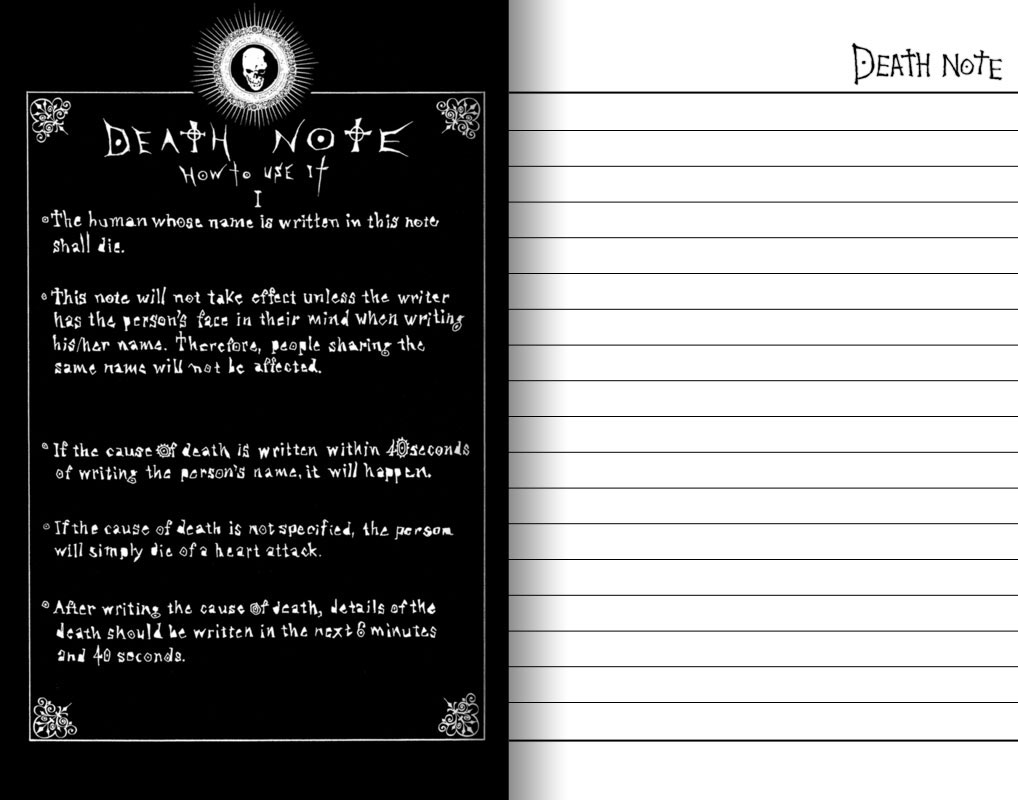 DEATH NOTE
HOW TO USE IT
I
The human whose name is written in this note
shall die.
This note will not take effect unless the writer
has the person's face in their mind when writing
his/her name. Therefore, people sharing the
same name will not be affected.
If the cause of death is written within 40 seconds
of writing the person's name, it will happen.
If the cause of death is not specified, the person
will simply die of a heart attack.
After writing the cause of death, details of the
death should be written in the next 6 minutes
and 40 seconds.
DEATH NOTE